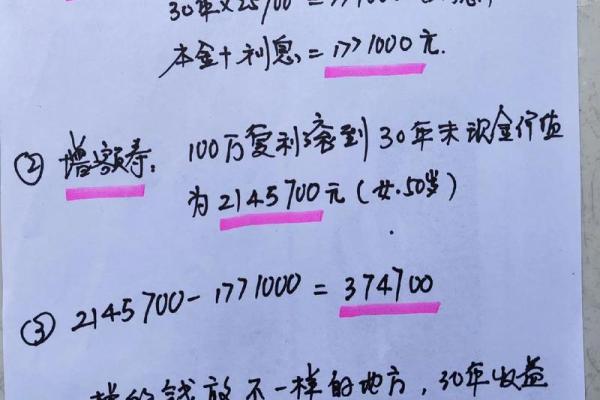 30年×25700=771000
本金+利息=1771000元.
② 增额寿: 100万复利滚到30年末现金价值
为2145700元(女.50岁)
③ 2145700-1771000=374700
钱放不一样的地方,30年收益